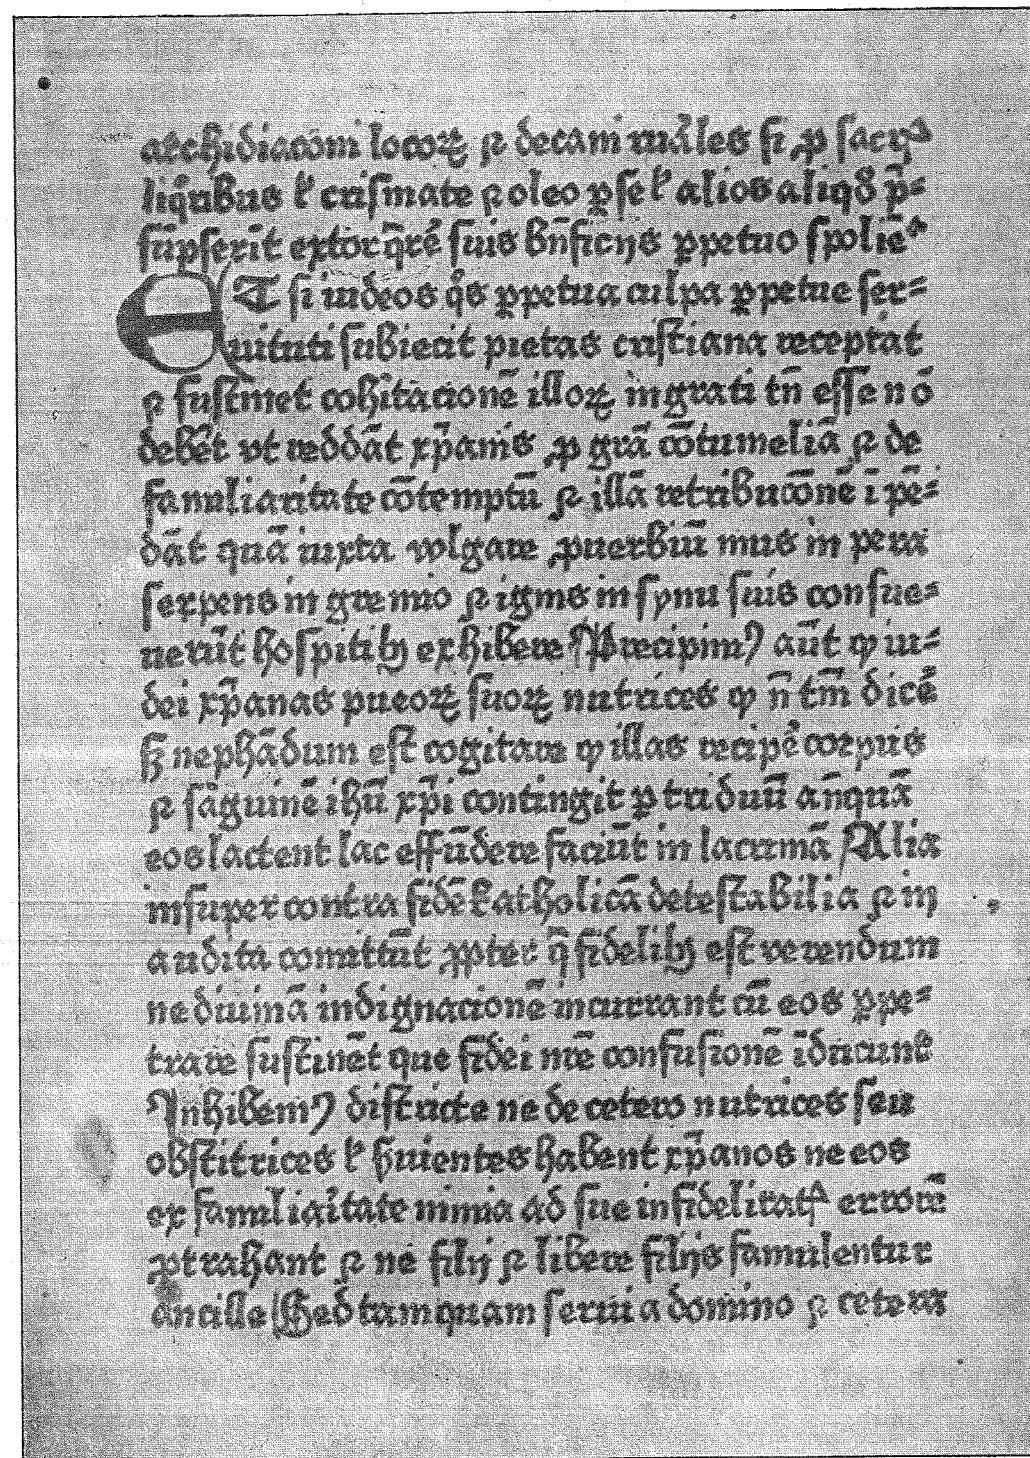 archidiaconi locoꝝ ⁊ decani ruͣles si ꝓ sacrꝭ
liqͦribus ł crismate ⁊ oleo ꝑ se ł alios aliqͦd p̄⸗
sūpserīt extorq̄re᷒ suis bn̄ficijs ꝑpetuo spoliēͭ
ET si iudeos qͦs ꝑpetua culpa ꝑpetue ser⸗
uituti subiecit pietas cristiana receptāt
⁊ sustinet cohītacionē illoꝝ ingrati tn̄ esse nō
debēt vt reddāt xp̄anis ꝓ grā cōtumeliā ⁊ de
familiaritate cōtemptū ⁊ illā retribucōnē ī pē⸗
dāt quā iuxta wlgare ꝓuerbiū mus in pera
serpens in gremio ⁊ ignis in synu suis consue⸗
uerūt hospitibꝫ exhibere Precipimꝰ aūt ꝙ iu⸗
dei xp̄anas pueoꝝ suoꝝ nutrices ꝙ n̄ tm̄ dicē
sꝫ nephādum est cogitare ꝙ illas recipe᷒ corpus
⁊ sāguinē ihū xp̄i contingit ꝑ triduū an̄quā
eos lactent lac effūdere faciūt in lacunā Alia
insuper contra fidē katholicā detestabilia ⁊ in
audita comittūt ꝓpter q̄ fidelibꝫ est verendum
ne diuinā indignacionē incurrant cū eos ꝑpe⸗
trare sustinēt que fidei nr̄e confusionē īducunt
Inhibemꝰ districte ne de cetero nutrices seu
obstitrices ł ẜuientes habent xp̄anos ne eos
ex familiaītate nimia ad sue infidelitatꝭ errorē
ꝓtrahant ⁊ ne filij ⁊ libere filijs famulentur
ancille Sed tamquam serui a domino ⁊ cetera